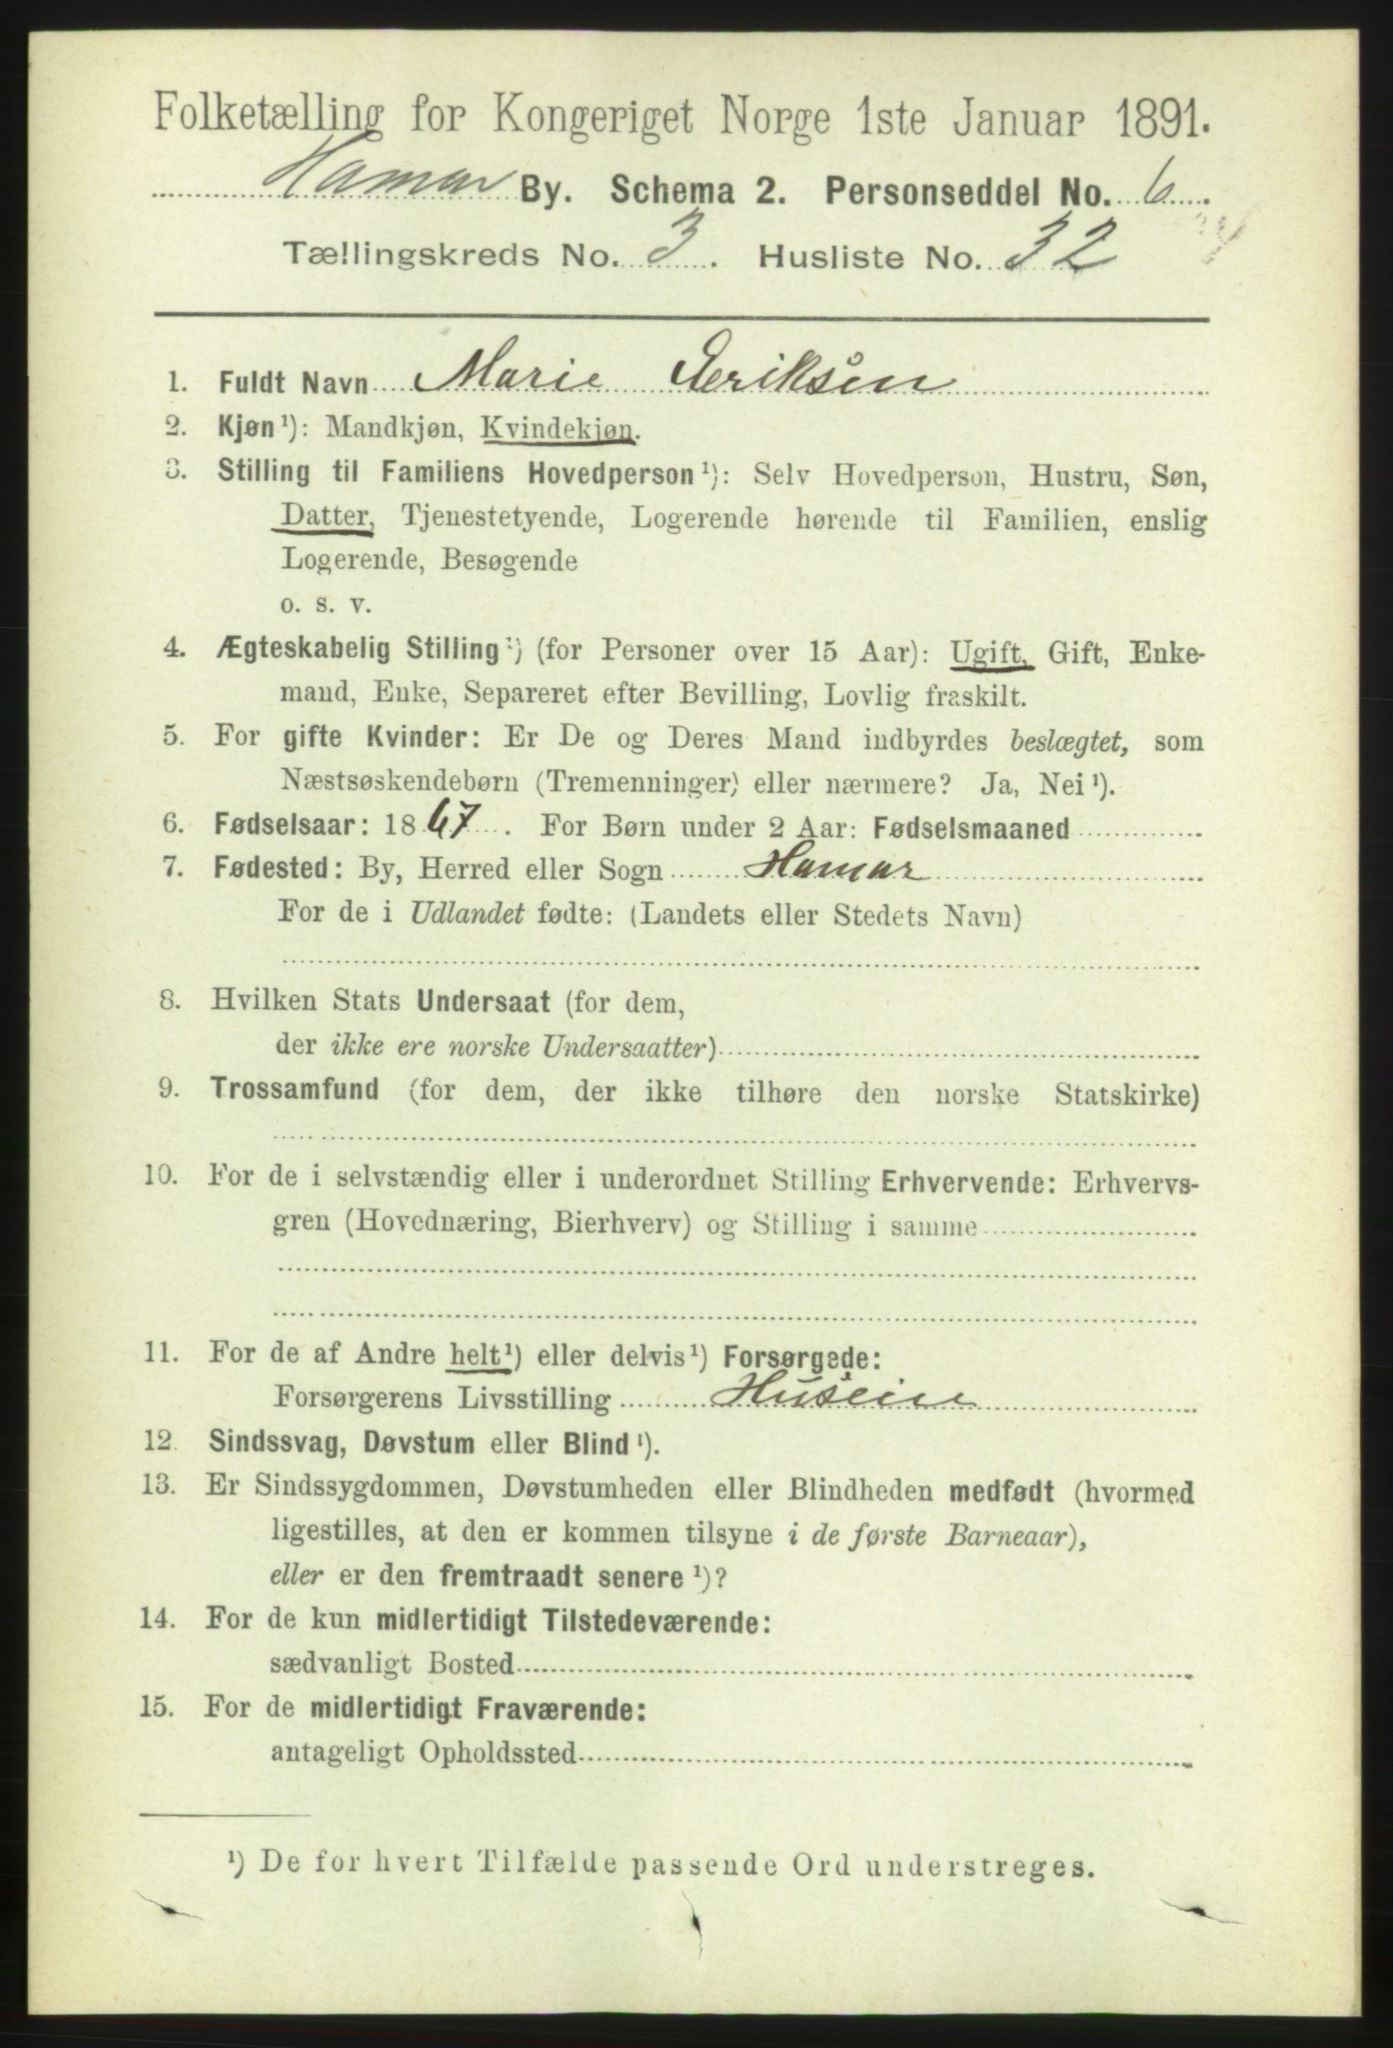 Folketælling for Kongeriget Norge 1ste Januar 1891.
Hamar By. Schema 2. Personseddel No. 6
Tællingskreds No. 3. Husliste No. 32
1. Fuldt Navn Marie Eeriksen
2. Kjøn¹): Mandkjøn, Kvindekjøn.
3. Stilling til Familiens Hovedperson¹): Selv Hovedperson, Hustru, Søn,
Datter, Tjenestetyende, Logerende hørende til Familien, enslig
Logerende, Besøgende
o. s. v.
4. Ægteskabelig Stilling¹) (for Personer over 15 Aar): Ugift, Gift, Enke-
mand, Enke, Separeret efter Bevilling, Lovlig fraskilt.
5. For gifte Kvinder: Er De og Deres Mand indbyrdes beslægtet, som
Næstsøskendebørn (Tremenninger) eller nærmere? Ja, Nei¹).
6. Fødselsaar: 1867. For Børn under 2 Aar: Fødselsmaaned
7. Fødested: By, Herred eller Sogn Hamar
For de i Udlandet fødte: (Landets eller Stedets Navn)
8. Hvilken Stats Undersaat (for dem,
der ikke ere norske Undersaatter)
9. Trossamfund (for dem, der ikke tilhøre den norske Statskirke)
10. For de i selvstændig eller i underordnet Stilling Erhvervende: Erhvervs-
gren (Hovednæring, Bierhverv) og Stilling i samme
11. For de af Andre helt¹) eller delvis¹) Forsørgede:
Forsørgerens Livsstilling Huseier
12 Sindssvag, Døvstum eller Blind¹).
13. Er Sindssygdommen, Døvstumheden eller Blindheden medfødt (hvormed
ligestilles, at den er kommen tilsyne i de første Barneaar),
eller er den fremtraadt senere¹)?
14. For de kun midlertidigt Tilstedeværende:
sædvanligt Bosted
15. For de midlertidigt Fraværende:
antageligt Opholdssted
¹) De for hvert Tilfælde passende Ord understreges.